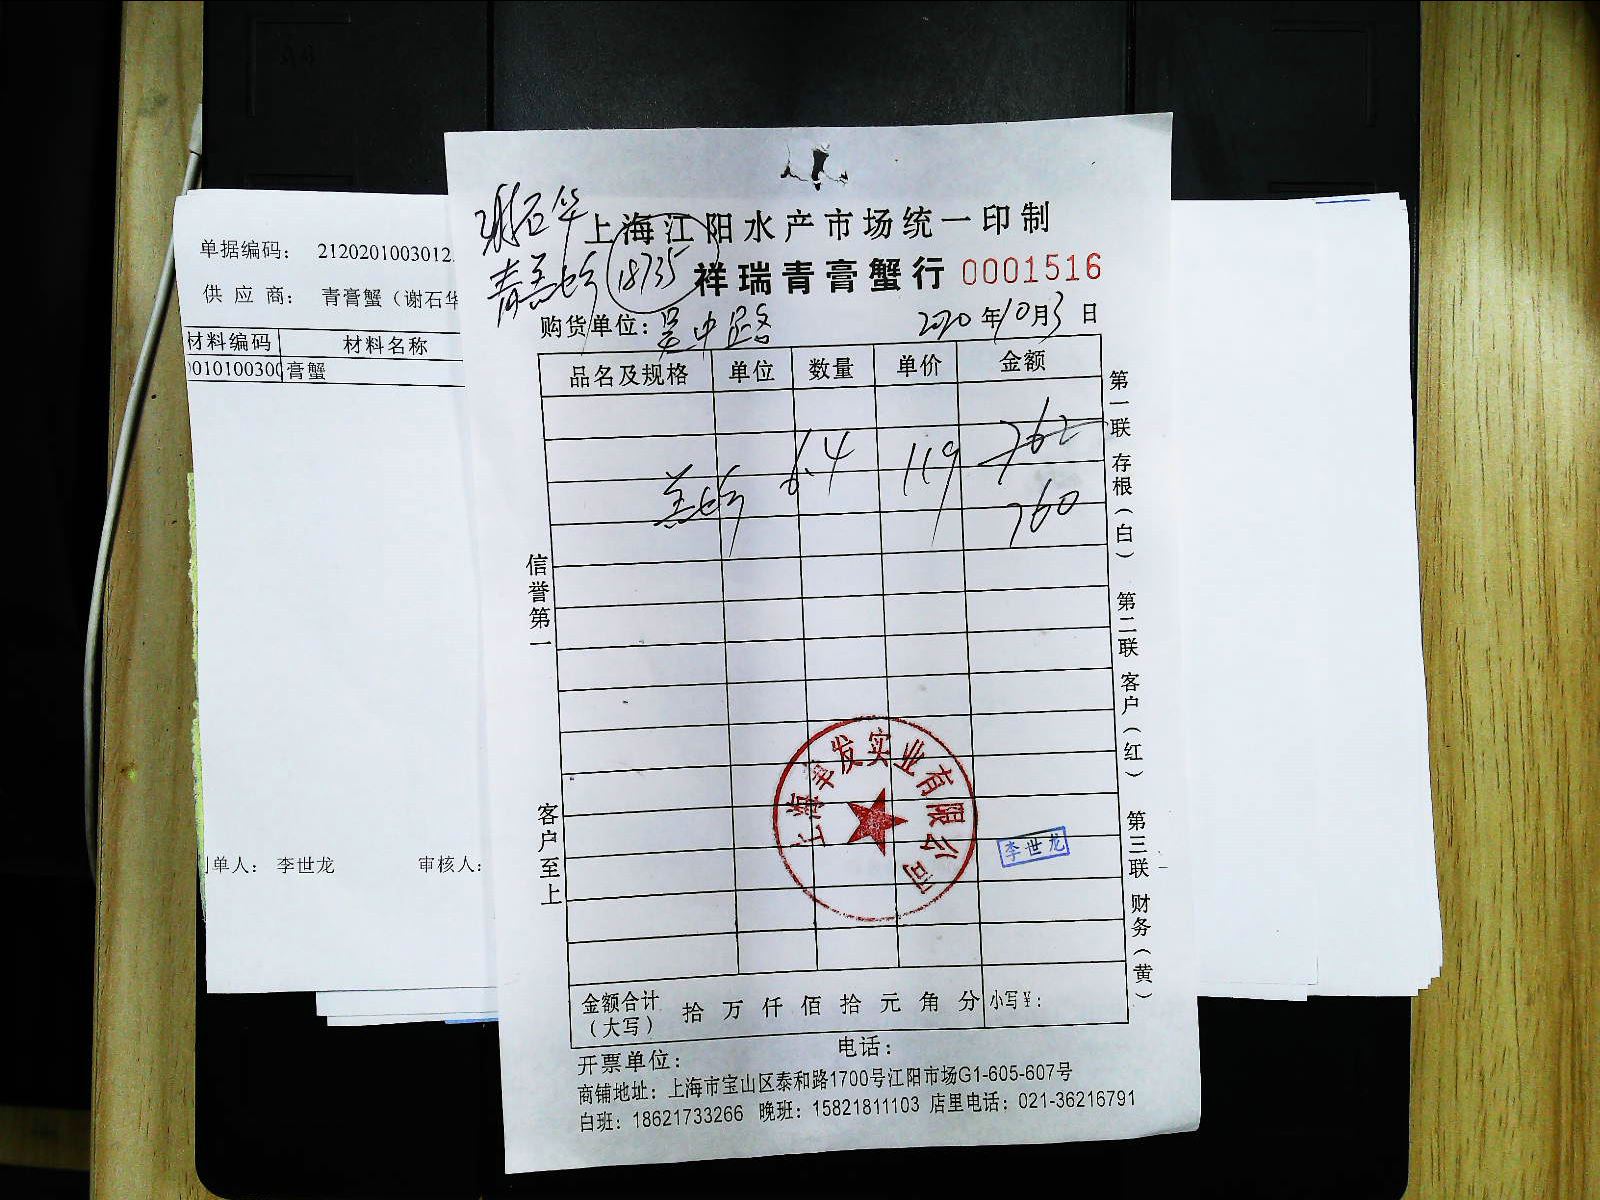 单据编码： 2120201003012
供 应 商： 青膏蟹（谢石华
材料编码 材料名称
010100300 膏蟹
制单人： 李世龙 审核人：
谢石华
青羔蟹 18735
上海江阳水产市场统一印制
祥瑞青膏蟹行 0001516
购货单位：吴中路 2020年10月3日
品名及规格 单位 数量 单价 金额
762
羔蟹 6.4 119
760
信誉第一
客户至上
第一联 存根（白） 第二联 客户（红） 第三联 财务（黄）
上海 发实业有限公司
李世龙
金额合计（大写） 拾 万 仟 佰 拾 元 角 分 小写¥：
开票单位： 电话：
商铺地址：上海市宝山区泰和路1700号江阳市场G1-605-607号
白班：18621733266 晚班：15821811103 店里电话：021-36216791